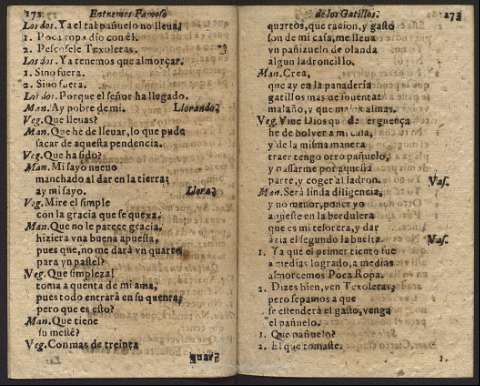 172 Entremes Famoso
Los dos. Ya el tal pañuelo no lleua.
1. Poca ropa dio con èl.
2. Pescosele Texoleras.
Los dos. Ya tenemos que almorçar.
1. Si no fuera.
2. Si no fuera.
Los dos. Porque el señor ha llegado.
Man. Ay pobre de mi. Llorando?
Veg. Que lleuas?
Man. Que hè de lleuar, lo que pude
sacar de aquesta pendencia.
Veg. Que ha sido?
Man. Mi sayo nueuo
manchado al dar en la tierra;
ay mi sayo. Llora?
Veg. Mire el simple
con la gracia que se quexa.
Man. Que no le parece gracia,
hiziera vna buena apuesta,
pues que, no me darà vn quarto
para vn pastel?
Veg. Que simpleza!
toma a quenta de mi ama,
pues todo entrarà en su quenta;
pero que es esto?
Man. Que tiene
su meñe?
Veg. Con mas de treinta
de los Gatillos. 273
quartos, que racion, y gasto
son de mi casa, me lleua
vn pañizuelo de olanda
algun ladroncillo.
Man. Crea,
que ay en la panaderia
gatillos mas de
malaño, y que almas.
Veg. Viue Dios que de verguença
he de bolver a mi casa,
y de la misma manera
traer tengo otro pañuelo,
y passarme por aquessa
parte, y coger al ladron. Vas.
Man. Serà linda diligencia,
y no menor, pones yo
aqueste en la berdulera
que es mi tesorera, y dar
àzia el segundo la buelta. Vas.
1. Ya que el primer tiento fue
a medias logrado, a medias
almorcemos Poca Ropa.
2. Dizes bien, ven Texoleras;
pero sepamos a que
se estenderà el gasto, venga
el pañuelo.
1. Que pañuelo?
2. El que tomaste.
1.